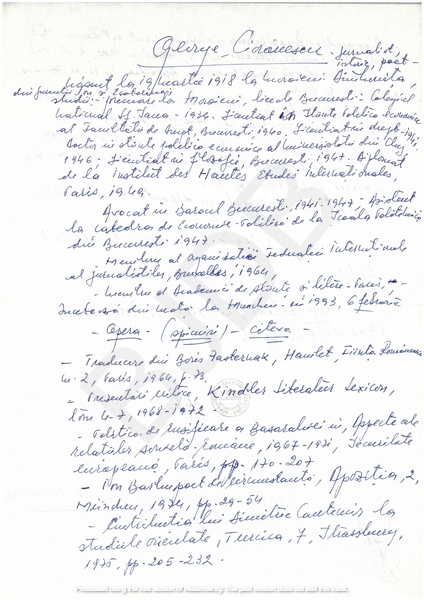 George Ciorănescu - jurnalist,
istoric, poet -
Născut la 19 martie 1918 la Moroieni Dîmbovița,
din părinții Ion și Ecaterina
studii: - Primare la Moroieni, liceale București: Colegiul
național Sf. Sava - 1936. Licențiat în Științe Politico economice
al Facultății de Drept, București 1940. Licențiat în drept - 1941,
Doctor în științe politico economice al Universității din Cluj,
1946. Licențiat în filosofie, București, 1947. Diplomat
de la Institut des Hautes Etudes Internationales,
Paris, 1949.
Avocat în Baroul București, 1941-1947, Asistent
la catedra de Economie Politică de la Școala Politehnică
din București 1947.
Membru al organizației Federației internaționale
al jurnaliștilor, Bruxelles, 1964,
- membru al Academiei de științe și litere - Paris, -
Încetează din viață la München în 1993, 6 februarie
- Opera - (opinii) - citeva -
- Traducere din Boris Pasternak, Hamlet, Ființa Românească
nr. 2, Paris, 1964, p. 73,
- Prezentări critice, Kindler Literatur Lexicon,
tom 4-7, 1968-1972
- Politica de rusificare a Basarabiei în, Aspecte ale
relațiilor sovieto-române, 1967-1971, Securitate
europeană, Paris, pp. 170-207
- Ion Barbu, poet de circumstanță, Apoziția, 2,
München, 1974, pp. 29-54
- Contribution lui Dimitrie Cantemir la
studiile orientale, Turcica, 7, Strassburg,
1975, pp. 205-232.